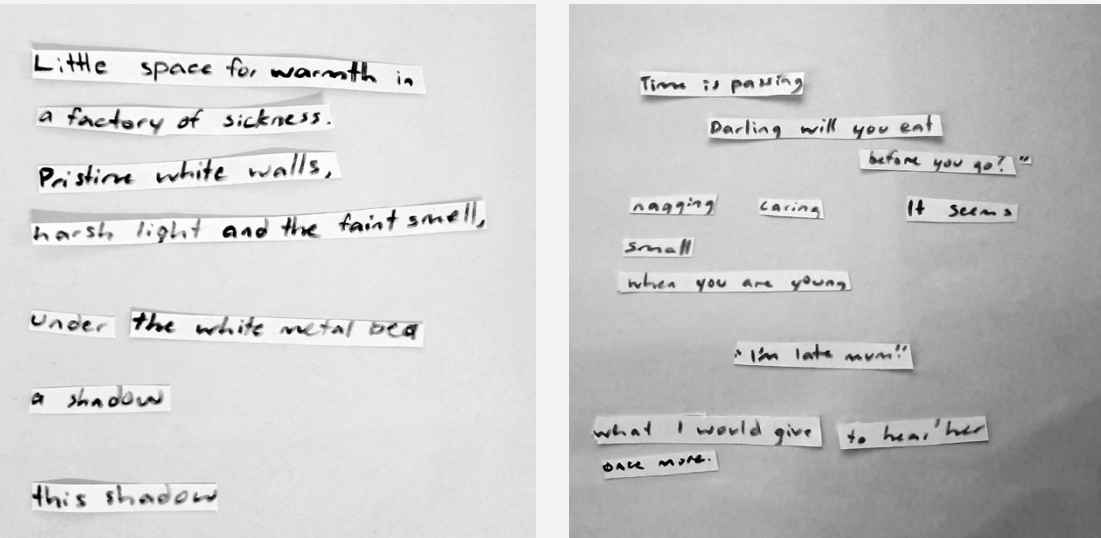 Little space for warmth in
a factory of sickness.
Pristine white walls,
harsh light and the faint smell,
under the white metal bed
a shadow
this shadow
Time is passing
Darling will you eat
before you go?"
nagging caring It seems
small
when you are young
"I'm late mum"
what I would give to hear her
once more.